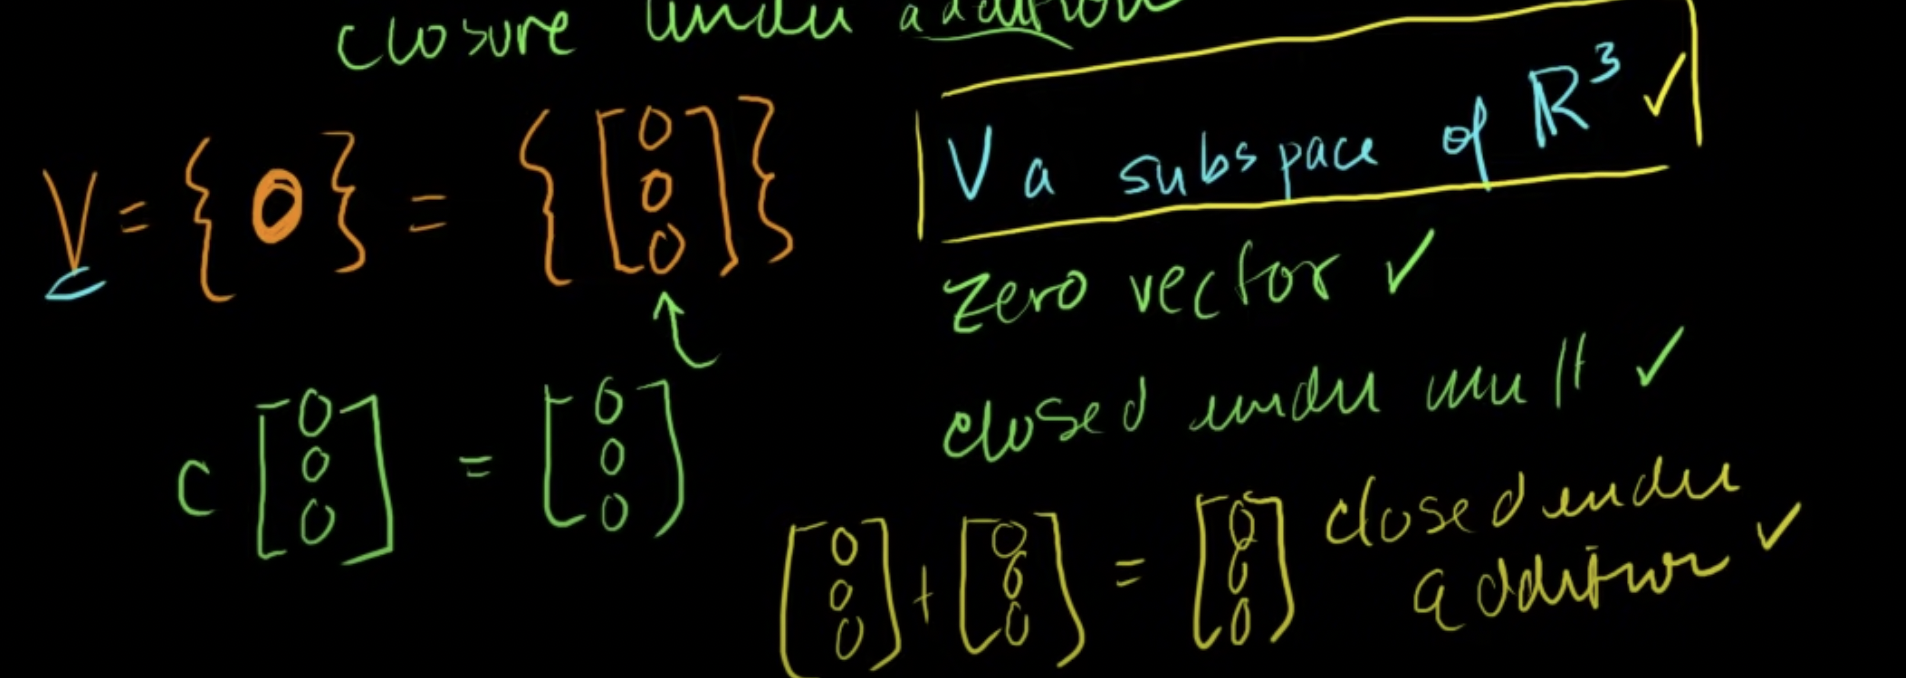 closure under addition
V = { 0 } = { [0 0 0] }
V a subspace of ℝ³ ✓
zero vector ✓
c [0 0 0] = [0 0 0]
closed under mult ✓
[0 0 0] + [0 0 0] = [0 0 0]
closed under
addition ✓